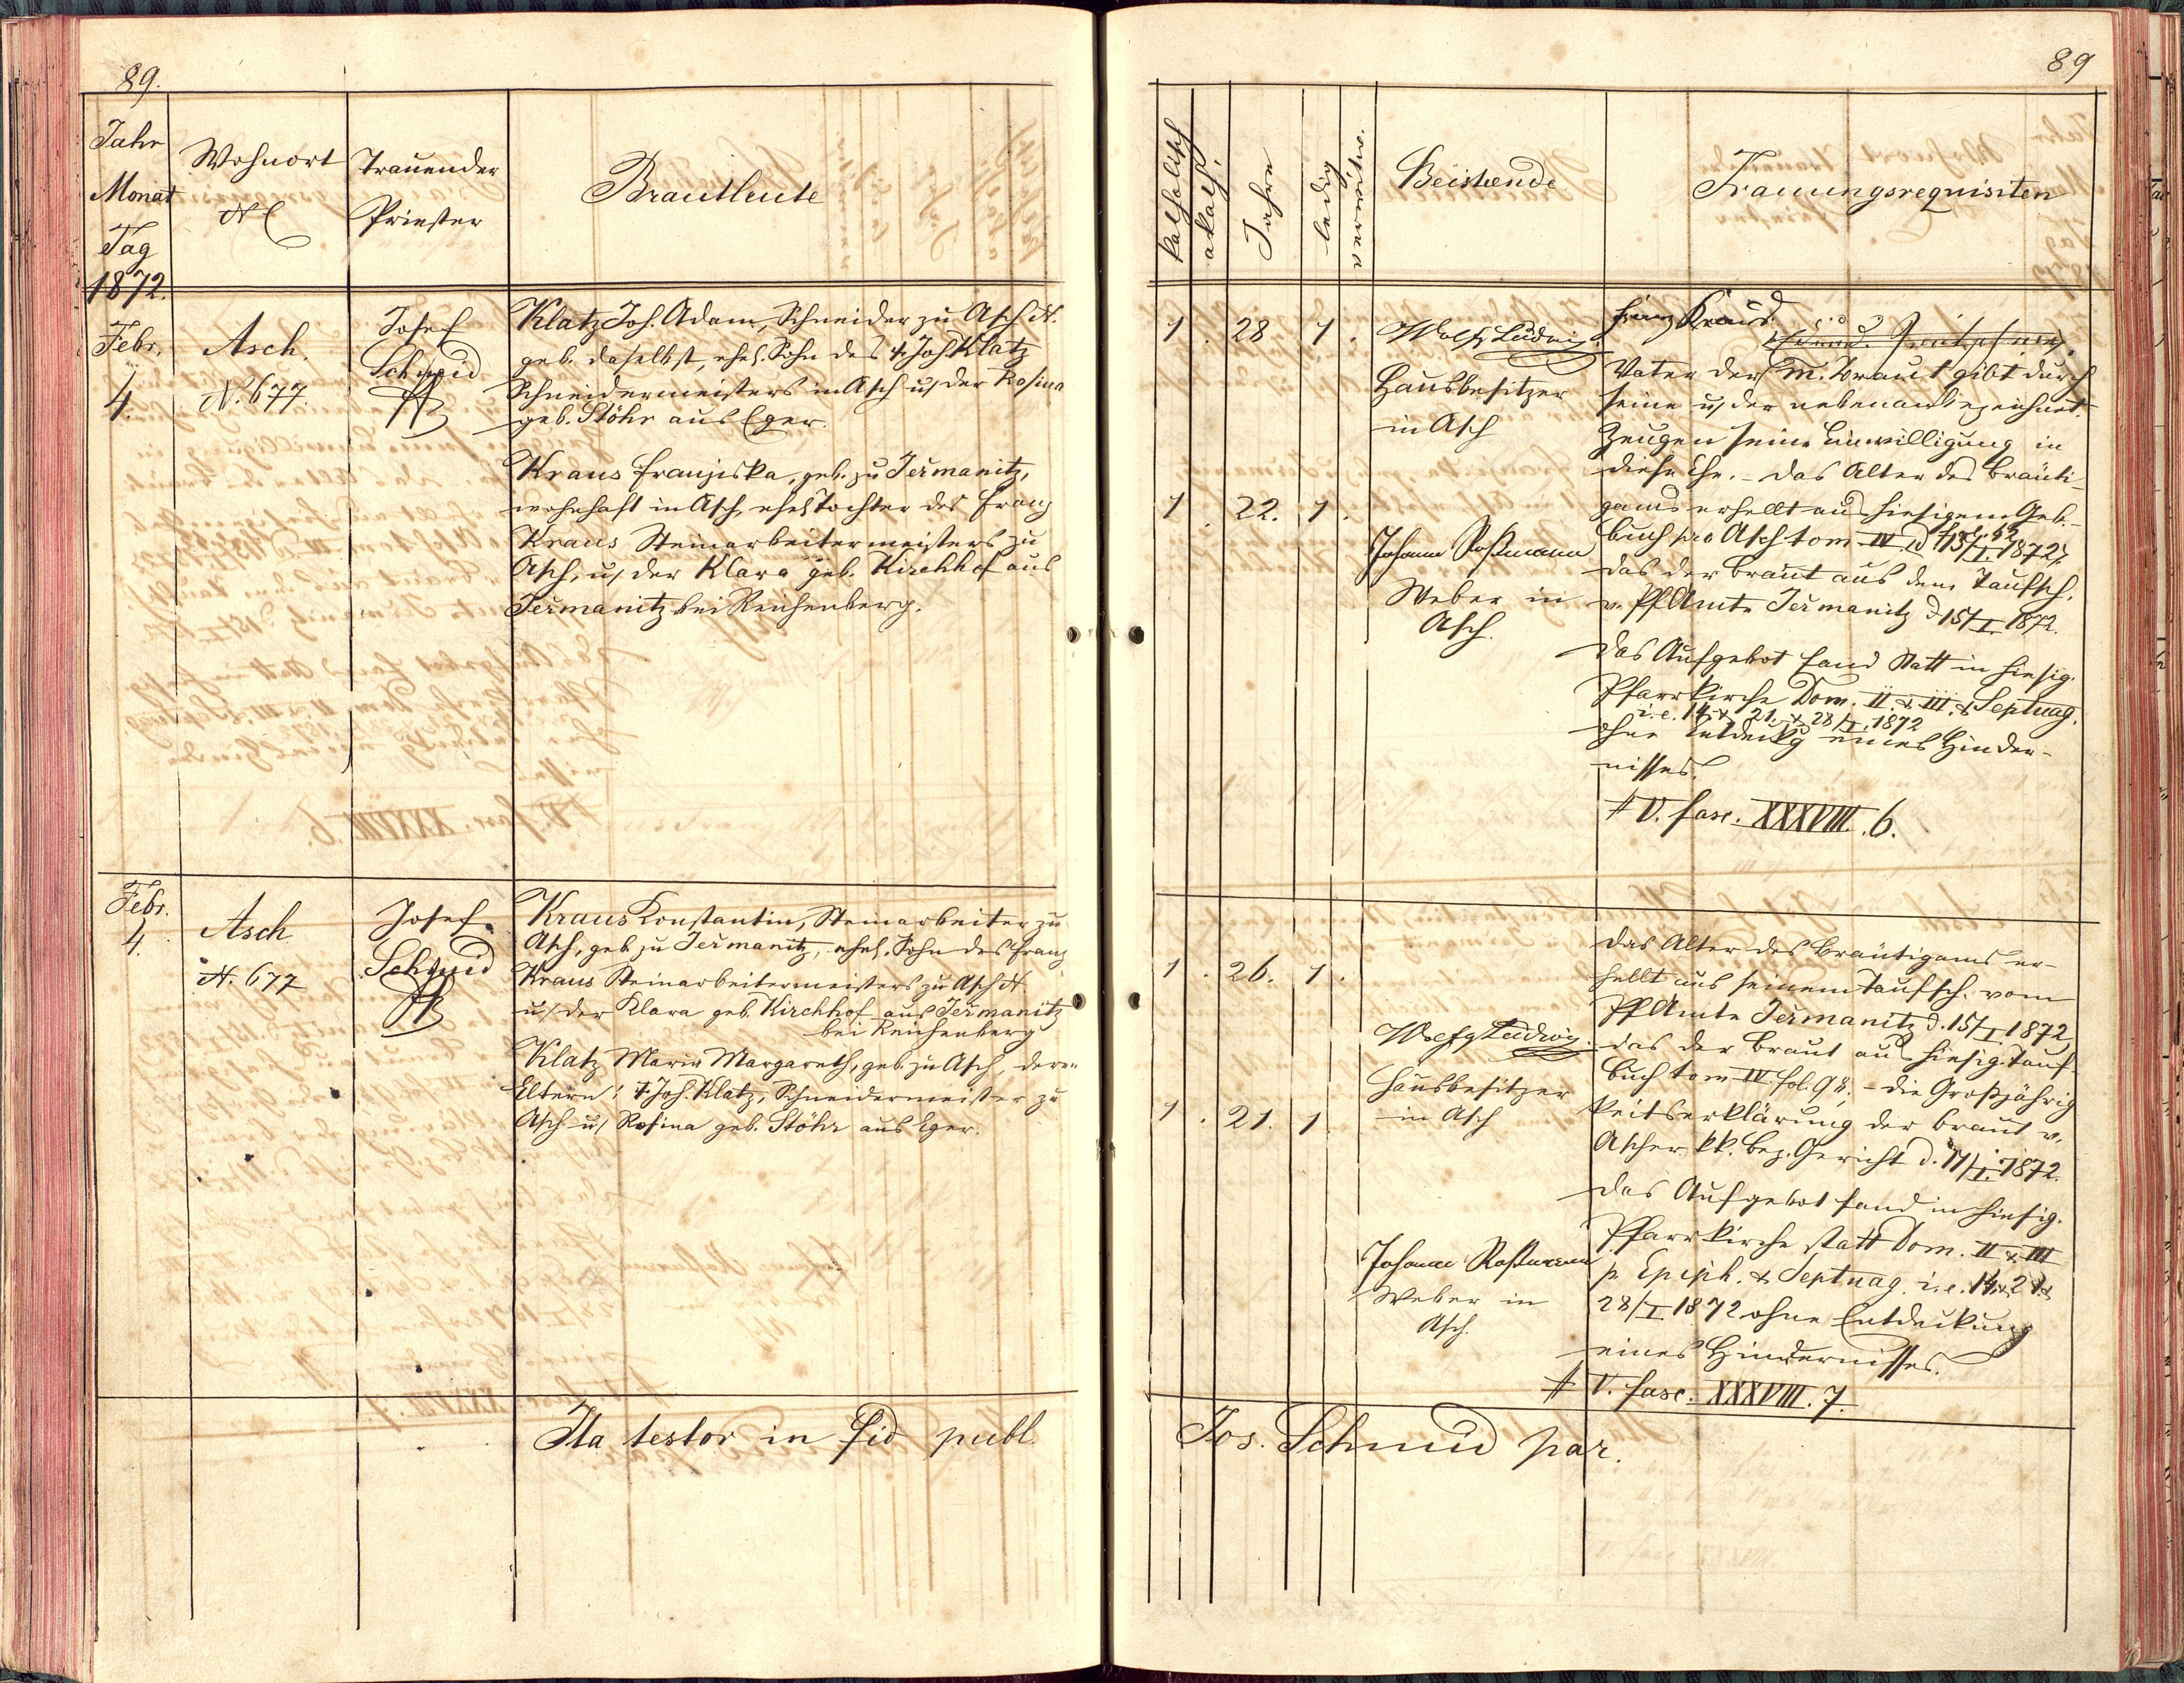 89.
Jahr
Monat
Tag
1872.
Wohnort
N
Trauender
Priester
Brautleute
Febr.
4.
Asch.
N. 677.
Josef
Schmid
Klatz Joh. Adam, Schneider zu Asch N.
geb. daselbst, ehel. Sohn des † Joh. Klatz
Schneidermeisters in Asch u. der Rosina
geb. Stöhr aus Eger.
Kraus Franziska, geb. zu Jeřmanitz,
wohnhaft in Asch, ehel. Tochter des Franz
Kraus Steinarbeitermeisters zu
Asch, u. der Klara geb. Kirchhof aus
Jeřmanitz bei Reichenberg.
Febr.
4.
Asch
N. 677
Josef
Schmid
Kraus Konstantin, Steinarbeiter zu
Asch, geb. zu Jeřmanitz, ehel. Sohn des Franz
Kraus Steinarbeitermeisters zu Asch N.
u. der Klara geb. Kirchhof aus Jeřmanitz
bei Reichenberg
Klatz Maria Margareth, geb. zu Asch, deren
Eltern: † Joh. Klatz, Schneidermeister zu
Asch u. Rosina geb. Stöhr aus Eger.
Ita testor in fid publ.
89
katholisch
akath.
Jahre
ledig
verwitw.
Beistende
Trauungsrequisiten
1 . 28 1 .
Ludwig
Hausbesitzer
in Asch
1 . 22. 1 .
Johann Roßmann
Weber in
Asch.
Franz Kraus
Vater der m. Braut gibt durch
seine u. der nebenan bezeichnet.
Zeugen seine Einwilligung in
diese Ehe. – Das Alter des Bräuti-
gams erhellt aus hiesigem Geb.-
buch pro Asch tom. IV
das der Braut aus dem Taufsch.
v. Pf Amte Jeřmanitz d 15/I. 1872.
Das Aufgebot fand statt in hiesig.
Pfarrkirche Dom. II. & III. & Septuag.
i. e. 14. & 21. & 28/I. 1872
ohne Entdeckg eines Hinder-
nisses.
# V. fasc. XXXVIII. 6.
1 . 26. 1 .
Ludwig
Hausbesitzer
in Asch
1 . 21. 1
Johann Roßmann
Weber in
Asch.
Das Alter des Bräutigams er-
hellt aus seinem Taufsch. vom
Pf Amte Jeřmanitz d. 15/I 1872,
das der Braut aus hiesig. Tauf-
buch tom IV. fol. 98. – die Großjährig
keitserklärung der Braut v.
Ascher kk. Bez. Gericht d. 11/I. 1872.
Das Aufgebot fand in hiesig.
Pfarrkirche statt Dom. II & III
p. Epiph. & Septuag. i. e. 14. & 21. &
28/I 1872 ohne Entdeckung
eines Hindernisses.
# V. fasc. XXXVIII. 7.
Jos. Schmid par.